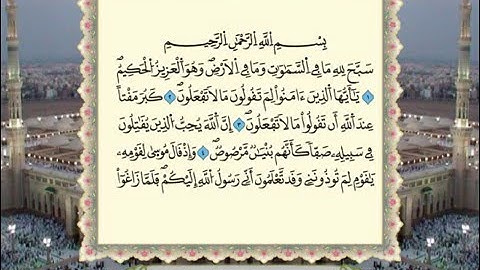 بِسْمِ اللَّهِ الرَّحْمَٰنِ الرَّحِيمِ
سَبَّحَ لِلَّهِ مَا فِي السَّمَٰوَٰتِ وَمَا فِي الْأَرْضِ ۖ وَهُوَ الْعَزِيزُ الْحَكِيمُ
۱ يَٰٓأَيُّهَا الَّذِينَ ءَامَنُوا۟ لِمَ تَقُولُونَ مَا لَا تَفْعَلُونَ ۲ كَبُرَ مَقْتًا
عِندَ اللَّهِ أَن تَقُولُوا۟ مَا لَا تَفْعَلُونَ ۳ إِنَّ اللَّهَ يُحِبُّ الَّذِينَ يُقَٰتِلُونَ
فِي سَبِيلِهِۦ صَفًّا كَأَنَّهُم بُنْيَٰنٌ مَّرْصُوصٌ ٤ وَإِذْ قَالَ مُوسَىٰ لِقَوْمِهِۦ
يَٰقَوْمِ لِمَ تُؤْذُونَنِي وَقَد تَّعْلَمُونَ أَنِّي رَسُولُ اللَّهِ إِلَيْكُمْ ۖ فَلَمَّا زَاغُوٓا۟